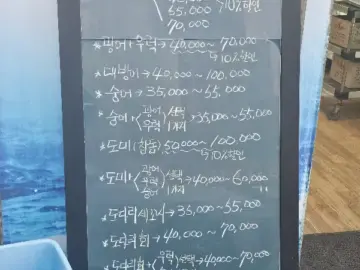 55,000 →10%할인
70,000
*광어+우럭→40,000~70,000
→10%할인
*대방어→40,000~100,000
*숭어→35,000~55,000
*숭어+(광어 우럭) 선택 1가지→35,000~55,000
*도미(참돔) 50,000~100,000
→10%할인
*도미+(광어 우럭 숭어) 선택→40,000~60,000
*도다리세꼬시→35,000~55,000
*도다리회→40,000~70,000
*도다리회+(우럭 선택→40,000~70,000